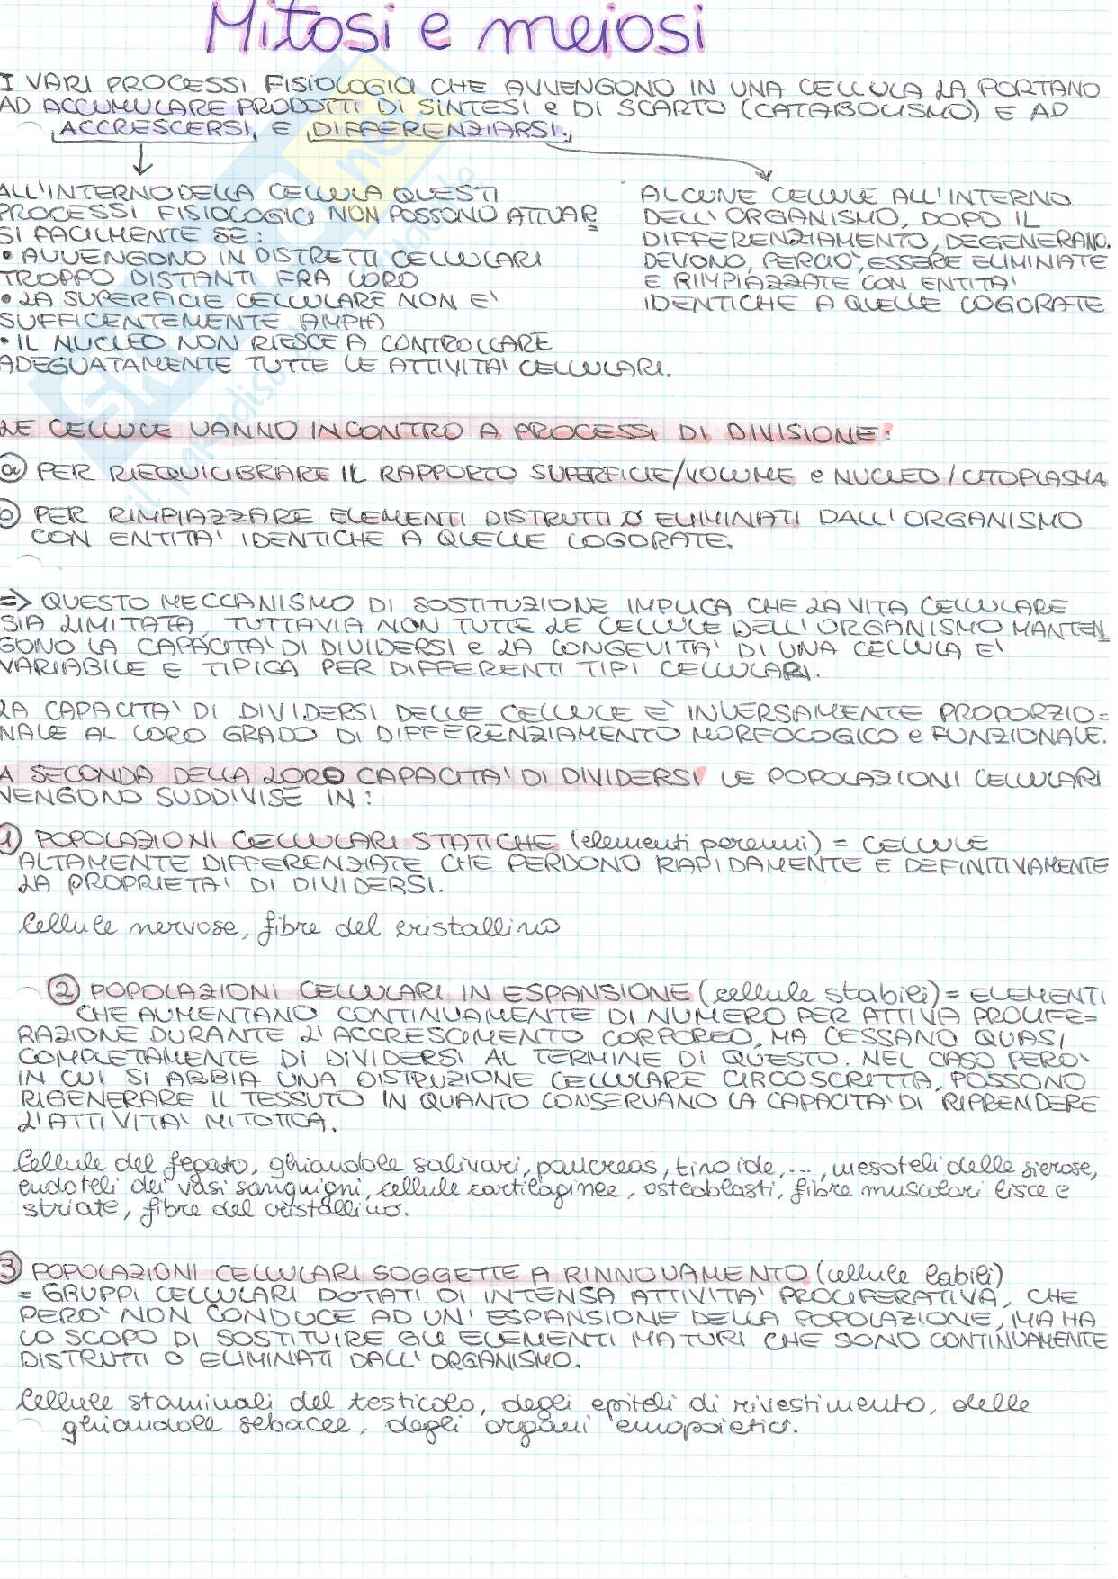 Mitosi e meiosi
I VARI PROCESSI FISIOLOGICI CHE AVVENGONO IN UNA CELLULA LA PORTANO
AD ACCUMULARE PRODOTTI DI SINTESI e DI SCARTO (CATABOLISMO) E AD
ACCRESCERSI, E DIFFERENZIARSI.
ALL'INTERNO DELLA CELLULA QUESTI
PROCESSI FISIOLOGICI NON POSSONO ATTUAR
SI FACILMENTE SE:
• AVVENGONO IN DISTRETTI CELLULARI
TROPPO DISTANTI FRA LORO
• LA SUPERFICIE CELLULARE NON E'
SUFFICENTEMENTE AMPIA
• IL NUCLEO NON RIESCE A CONTROLLARE
ADEGUATAMENTE TUTTE LE ATTIVITA' CELLULARI.
ALCUNE CELLULE ALL'INTERNO
DELL'ORGANISMO, DOPO IL
DIFFERENZIAMENTO, DEGENERANO.
DEVONO, PERCIO', ESSERE ELIMINATE
E RIMPIAZZATE CON ENTITA'
IDENTICHE A QUELLE LOGORATE
LE CELLULE VANNO INCONTRO A PROCESSI DI DIVISIONE:
PER RIEQUILIBRARE IL RAPPORTO SUPERFICIE/VOLUME e NUCLEO/CITOPLASMA
PER RIMPIAZZARE ELEMENTI DISTRUTTI O ELIMINATI DALL'ORGANISMO
CON ENTITA' IDENTICHE A QUELLE LOGORATE.
=> QUESTO MECCANISMO DI SOSTITUZIONE IMPLICA CHE LA VITA CELLULARE
SIA LIMITATA, TUTTAVIA NON TUTTE LE CELLULE DELL'ORGANISMO MANTEN
GONO LA CAPACITA' DI DIVIDERSI e LA LONGEVITA' DI UNA CELLULA E'
VARIABILE E TIPICA PER DIFFERENTI TIPI CELLULARI.
LA CAPACITA' DI DIVIDERSI DELLE CELLULE E' INVERSAMENTE PROPORZIO=
NALE AL LORO GRADO DI DIFFERENZIAMENTO MORFOLOGICO e FUNZIONALE.
A SECONDA DELLA LORO CAPACITA' DI DIVIDERSI LE POPOLAZIONI CELLULARI
VENGONO SUDDIVISE IN:
1) POPOLAZIONI CELLULARI STATICHE (elementi perenni) = CELLULE
ALTAMENTE DIFFERENZIATE CHE PERDONO RAPIDAMENTE E DEFINITIVAMENTE
LA PROPRIETA' DI DIVIDERSI.
Cellule nervose, fibre del cristallino
2) POPOLAZIONI CELLULARI IN ESPANSIONE (cellule stabili) = ELEMENTI
CHE AUMENTANO CONTINUAMENTE DI NUMERO PER ATTIVA PROLIFE=
RAZIONE DURANTE L'ACCRESCIMENTO CORPOREO, MA CESSANO QUASI
COMPLETAMENTE DI DIVIDERSI AL TERMINE DI QUESTO. NEL CASO PERO'
IN CUI SI ABBIA UNA DISTRUZIONE CELLULARE CIRCOSCRITTA, POSSONO
RIGENERARE IL TESSUTO IN QUANTO CONSERVANO LA CAPACITA' DI RIPRENDERE
L'ATTIVITA' MITOTICA.
Cellule del fegato, ghiandole salivari, pancreas, tiroide, ..., mesoteli delle sierose,
endoteli dei vasi sanguigni, cellule cartilaginee, osteoblasti, fibre muscolari lisce e
striate, fibre del cristallino.
3) POPOLAZIONI CELLULARI SOGGETTE A RINNOVAMENTO (cellule labili)
= GRUPPI CELLULARI DOTATI DI INTENSA ATTIVITA' PROLIFERATIVA, CHE
PERO' NON CONDUCE AD UN'ESPANSIONE DELLA POPOLAZIONE, MA HA
LO SCOPO DI SOSTITUIRE GLI ELEMENTI MATURI CHE SONO CONTINUAMENTE
DISTRUTTI O ELIMINATI DALL'ORGANISMO.
Cellule staminali del testicolo, degli epiteli di rivestimento, delle
ghiandole sebacee, degli organi emopoietici.